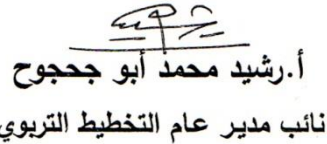 أ.رشيد محمد أبو جحجوح
نائب مدير عام التخطيط التربوي